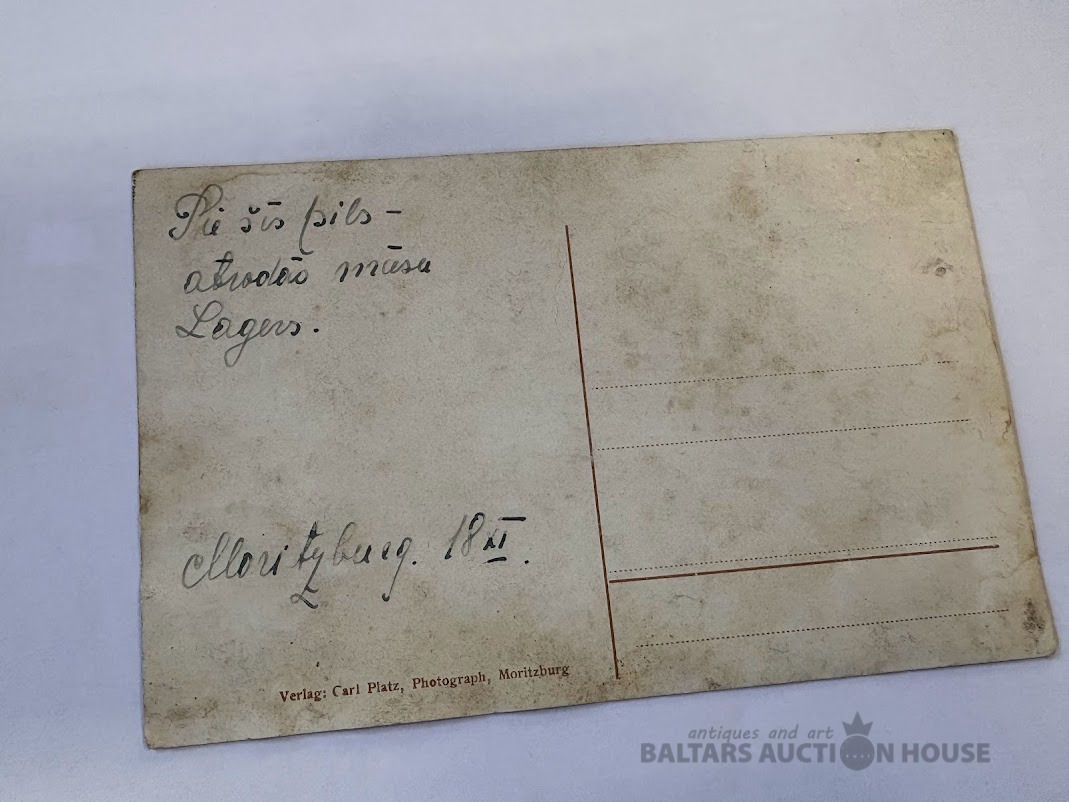 Pie šīs pils –
atrodās mūsu
Lagers.
Moritzburg. 18 XI.
Verlag: Carl Platz, Photograph, Moritzburg
antiques and art
BALTARS AUCTION HOUSE